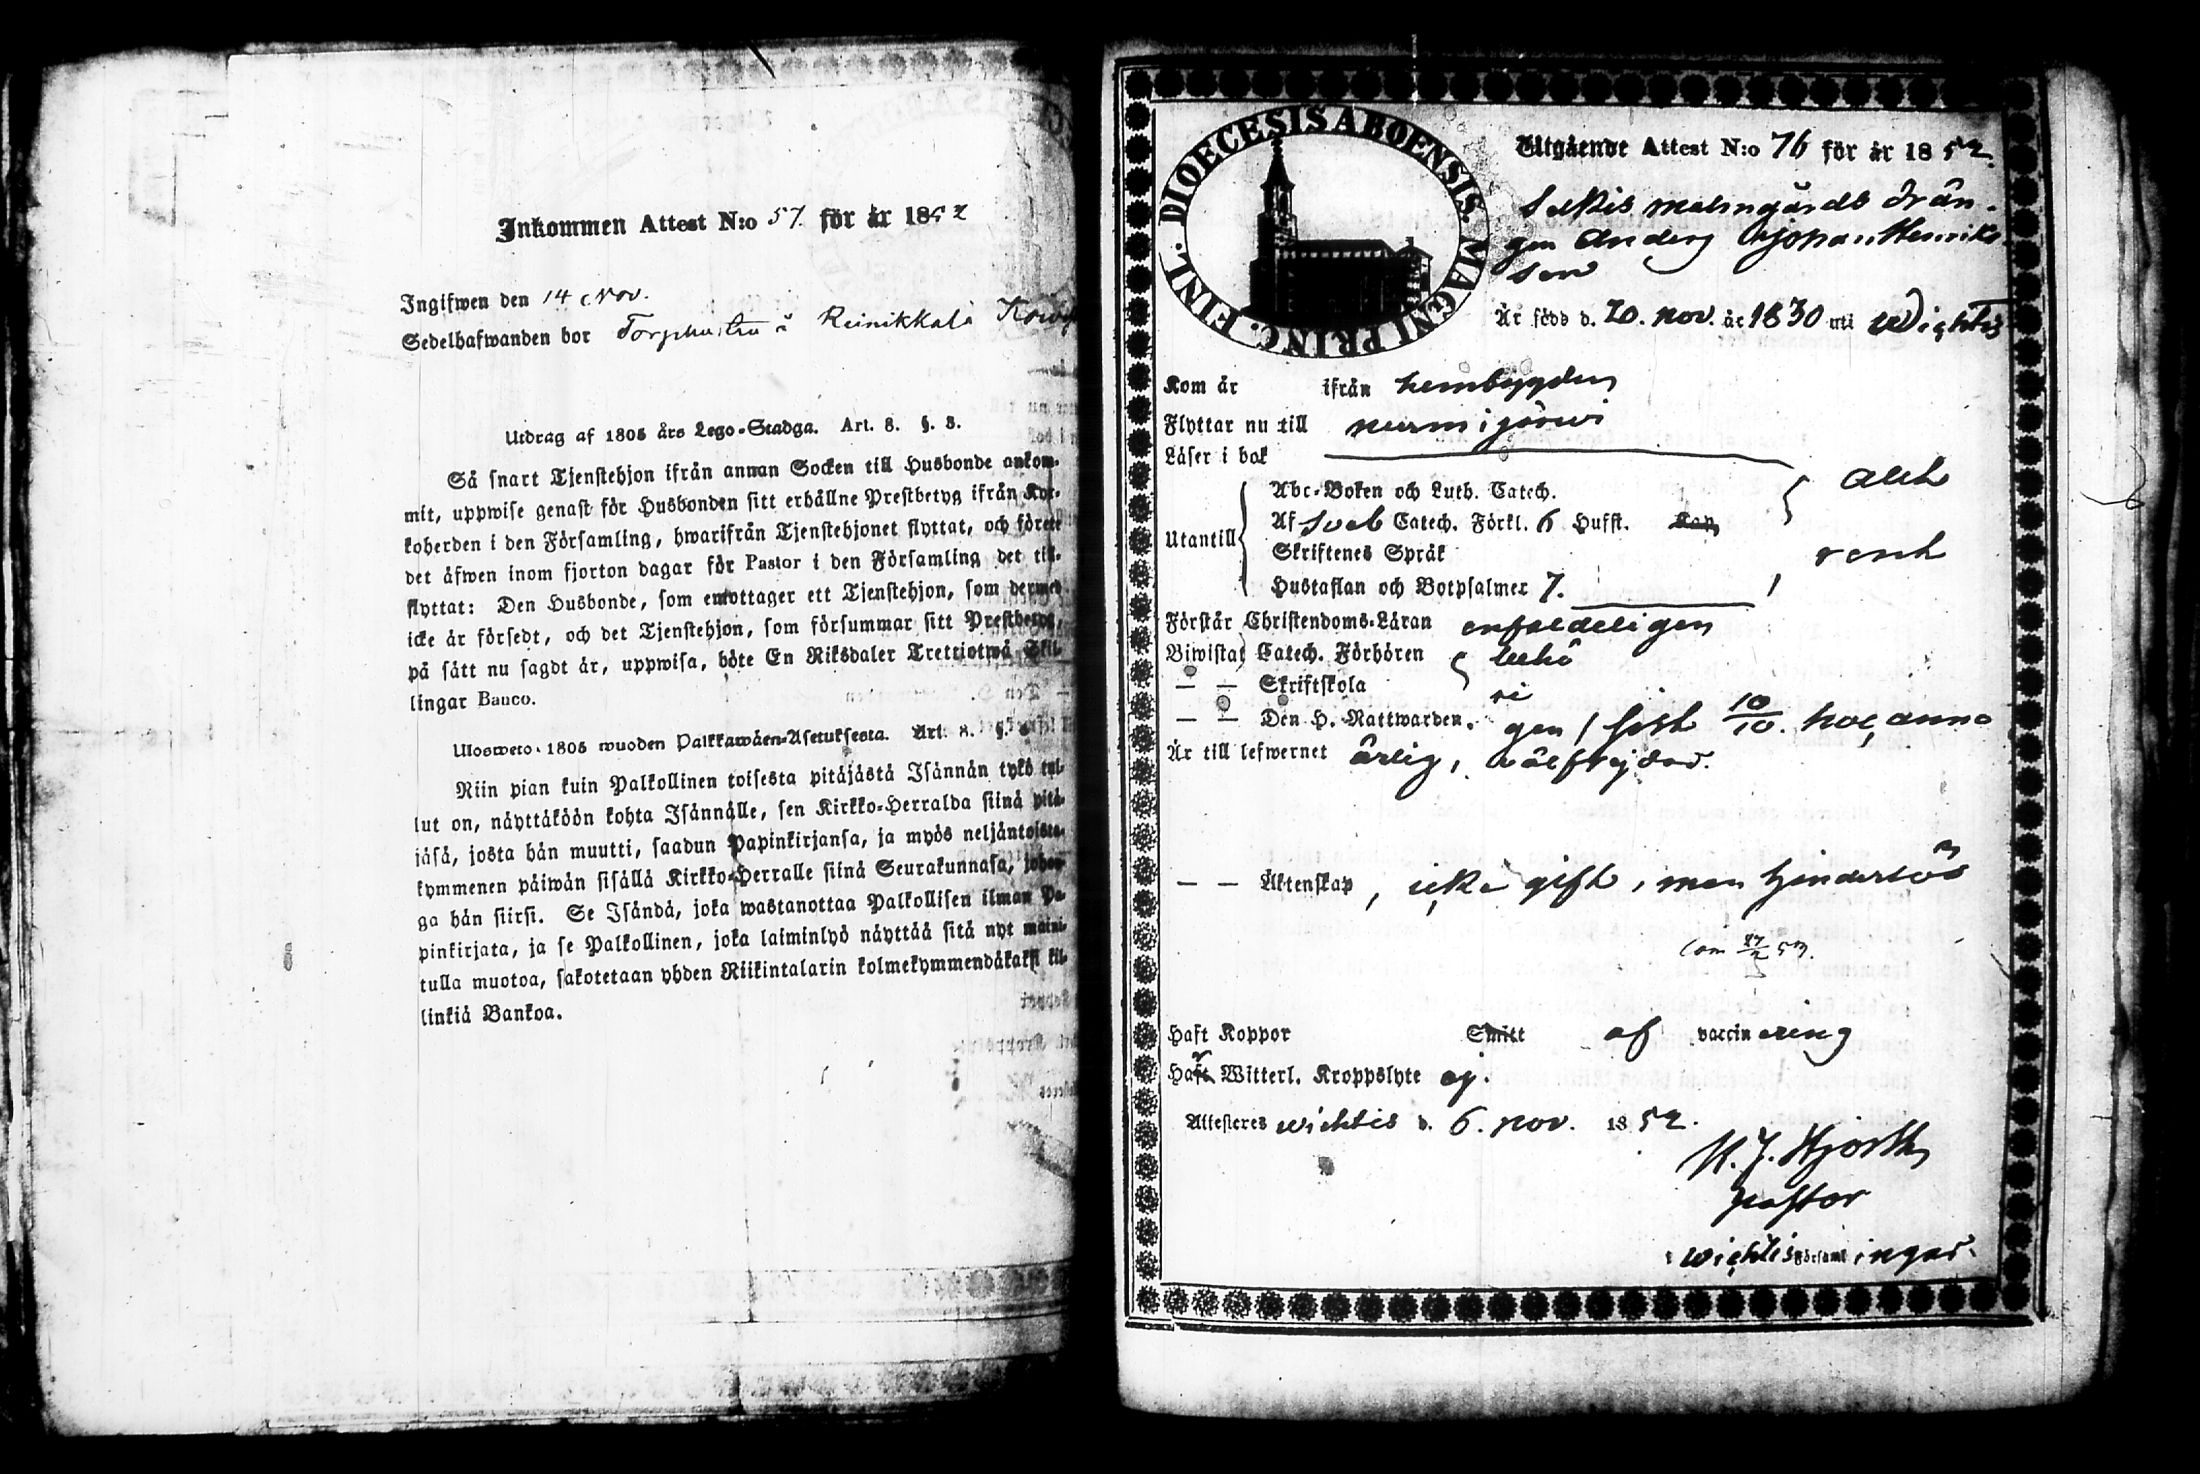 Inkommen Attest N:o 57. för år 1852
Ingifwen den 14 Nov.
Sedelhafwanden bor Torphustru å Reinikkala
Utdrag af 1805 års Lego-Stadga. Art. 8. §. 3.
Så snart Tjenstehjon ifrån annan Socken till Husbonde ankom-
mit, uppwise genast för Husbonden sitt erhållne Prestbetyg ifrån Kyr-
koherden i den Församling, hwarifrån Tjenstehjonet flyttat, och förete
det äfwen inom fjorton dagar för Pastor i den Församling det till-
flyttat: Den Husbonde, som emottager ett Tjenstehjon, som dermed
icke är försedt, och det Tjenstehjon, som försummar sitt Prestbetyg,
på sätt nu sagdt är, uppwisa, böte En Riksdaler Trettiotwå Skil-
lingar Banco.
Ulosweto 1805 wuoden Palkkawäen-Asetuksesta. Art. 8. §.
Niin pian kuin Palkollinen toisesta pitäjästä Isännän tykö tul-
lut on, näyttäköön kohta Isännälle, sen Kirkko-Herralda siinä pitä-
jäsä, josta hän muutti, saadun Papinkirjansa, ja myös neljäntoista-
kymmenen päiwän sisällä Kirkko-Herralle siinä Seurakunnasa, johon-
ga hän siirsi. Se Isändä, joka wastanottaa Palkollisen ilman Pa-
pinkirjata, ja se Palkollinen, joka laiminlyö näyttää sitä nyt maini-
tulla muotoa, sakotetaan yhden Riikintalarin kolmekymmendäkaksi kil-
linkiä Bankoa.
DIOECESIS ABOENSIS. MAGNI PRINC. FINL.
Utgående Attest N:o 76 för år 1852.
Malmgårds drän-
gen Anders Johan Henriks
son
Är född d. 20. nov. år 1830 uti Wichtis
Kom år ifrån hembygden
Flyttar nu till nurmijärwi
Läser i bok
Utantill
Abc-Boken och Luth. Catech.
Af Sveb Catech. Förkl. 6 Hufst. Kap
Skriftenes Språk
Hustaflan och Botpsalmer 7.
Förstår Christendoms-Läran enfaldeligen
Biwistat Catech. Förhören behö
— — Skriftskola ri
— — Den H. Nattwarden. gen, sist 10/10. hoc anno
Är till lefwernet ärlig, wälfrejdad.
— — Äktenskap, icke gift, men hinderlös
Haft Koppor Smitt af vaccinering
Haft Witterl. Kroppslyte ej.
Attesteres wichtis d. 6. nov. 1852.
H. J. Hjorth
pastor
i wichtis Församlingar.